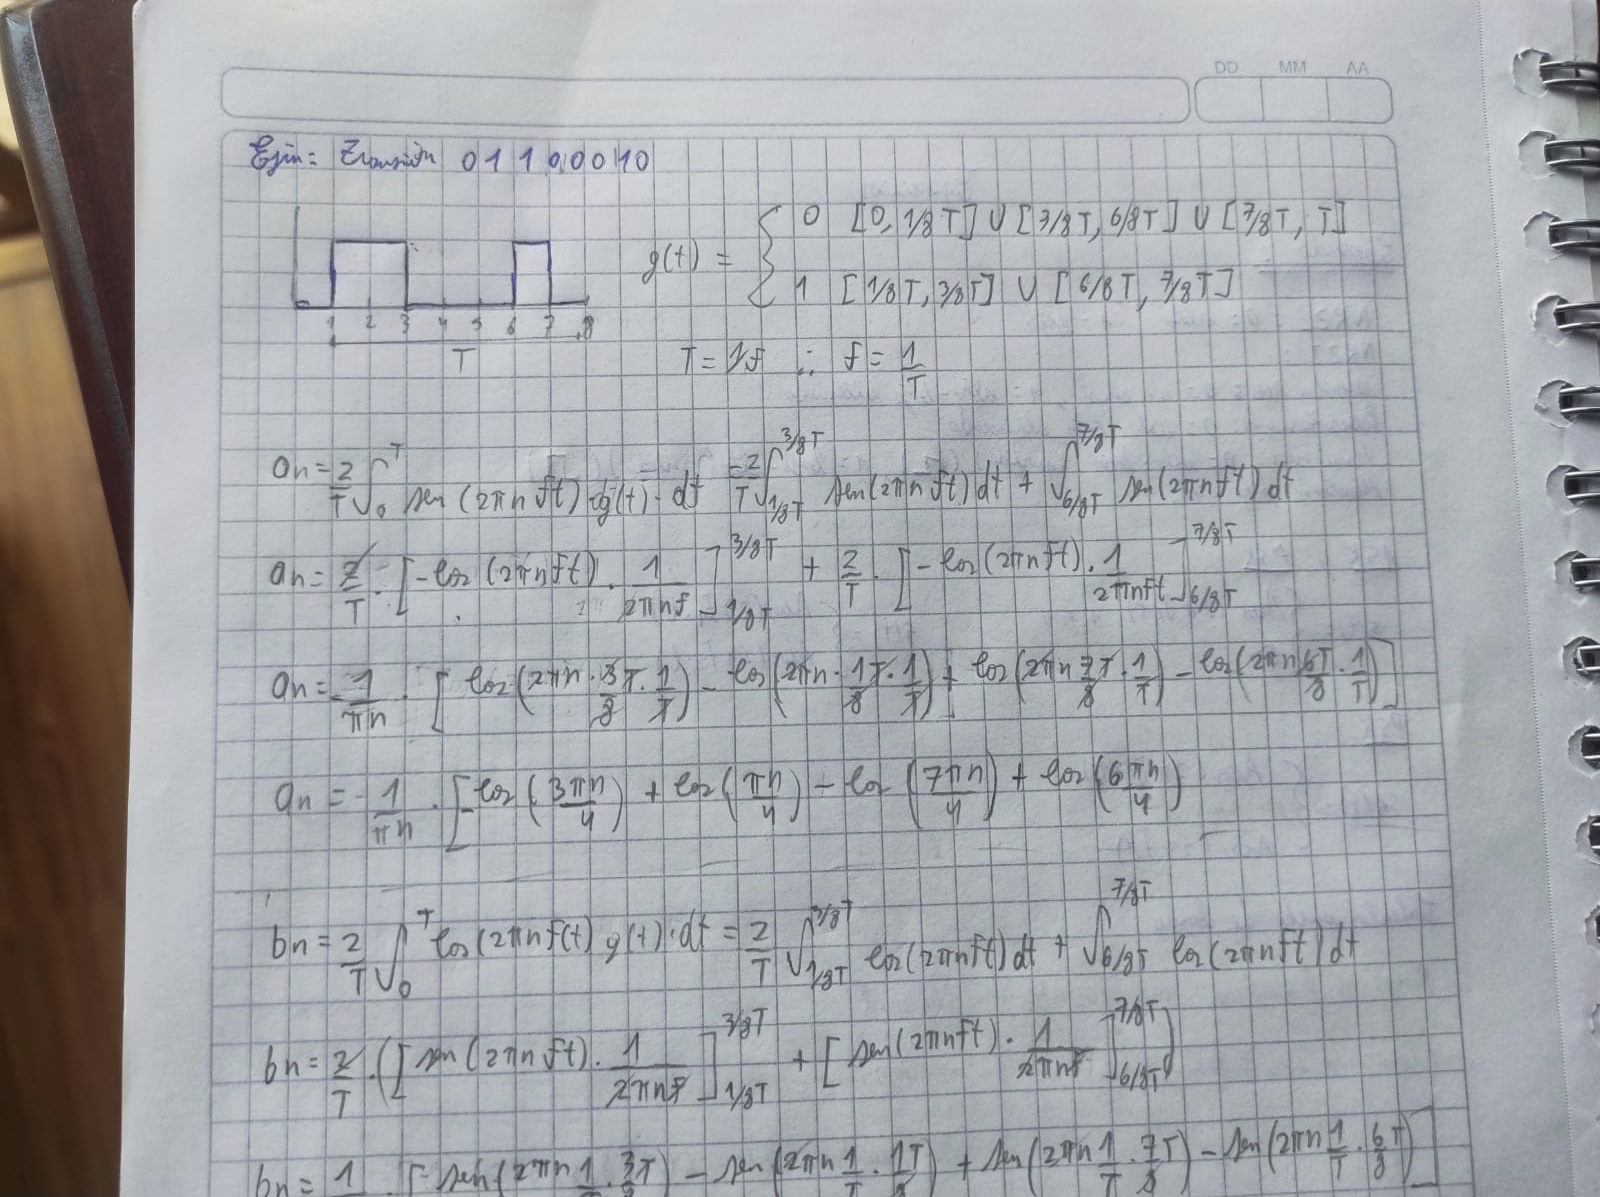 DD MM AA
Ejm: Transmitir 01100010
g(t) = { 0 [0, 1/8T] ∪ [3/8T, 6/8T] ∪ [7/8T, T]
1 [1/8T, 3/8T] ∪ [6/8T, 7/8T]
1 2 3 4 5 6 7 8
T
T = 1/f ∴ f = 1/T
an = 2/T ∫₀^T sen(2πnft) · g(t) · dt = 2/T ∫_{1/8T}^{3/8T} sen(2πnft) dt + ∫_{6/8T}^{7/8T} sen(2πnft) dt
an = 2/T · [-cos(2πnft) · 1/2πnf]_{1/8T}^{3/8T} + 2/T · [-cos(2πnft) · 1/2πnft]_{6/8T}^{7/8T}
an = -1/πn · [cos(2πn · 3/8T · 1/T) - cos(2πn · 1/8T · 1/T) + cos(2πn 7/8T · 1/T) - cos(2πn 6T/8 · 1/T)]
an = -1/πn · [-cos(3πn/4) + cos(πn/4) - cos(7πn/4) + cos(6πn/4)
bn = 2/T ∫₀^T cos(2πnf(t) g(t) · dt = 2/T ∫_{1/8T}^{3/8T} cos(2πnft) dt + ∫_{6/8T}^{7/8T} cos(2πnft) dt
bn = 2/T · ([sen(2πnft) · 1/2πnf]_{1/8T}^{3/8T} + [sen(2πnft) · 1/2πnf]_{6/8T}^{7/8T})
bn = 1 [sen(2πn 1 · 3T) - sen(2πn 1/T · 1T/8) + sen(2πn 1/T · 7/8 T) - sen(2πn 1/T · 6/8 T)]